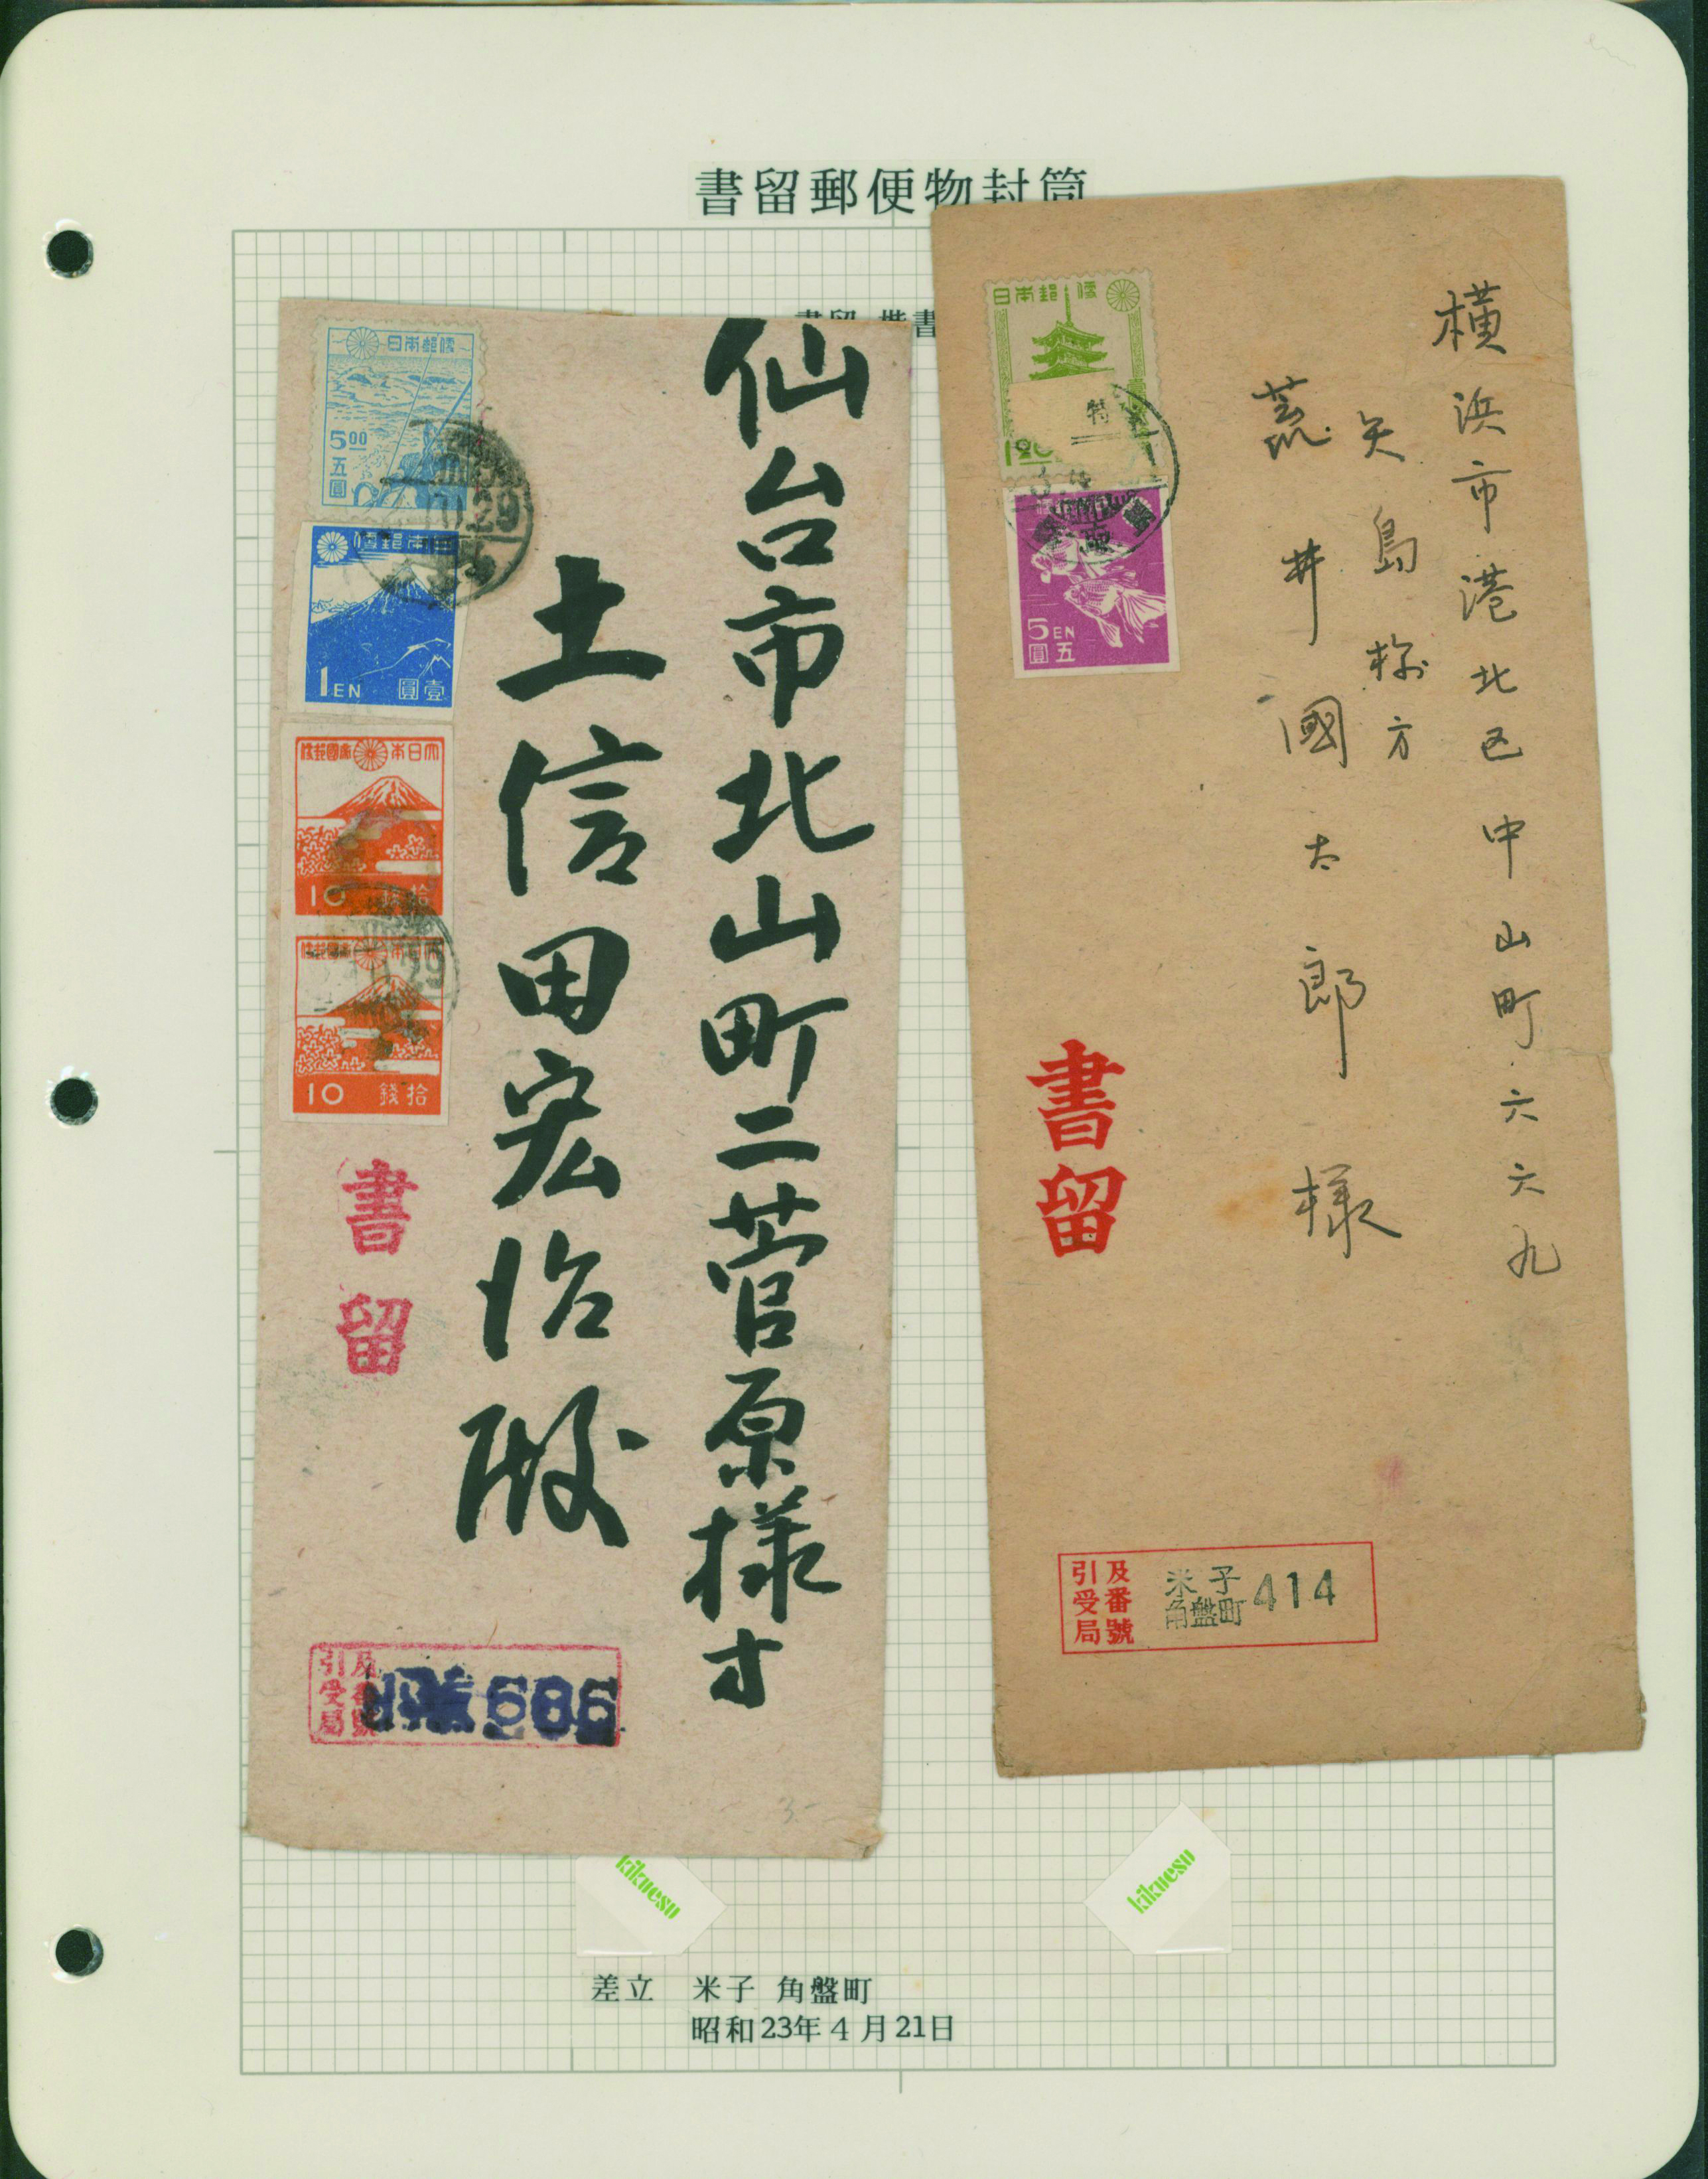 書留郵便物封筒
書留
仙台市北山町二菅原様方
土信田宏治殿
日本郵便
5.00
五圓
日本郵便
1EN
壹圓
大日本帝國郵便
10
拾錢
大日本帝國郵便
10
拾錢
29
29
書留
引受局
及番號
686
横浜市港北区中山町六六九
矢島様方
荒井國太郎様
日本郵便
特
1.20
5EN
五圓
書留
引受局
及番號
米子
角盤町
414
kikusesu
kikusesu
差立 米子 角盤町
昭和23年4月21日